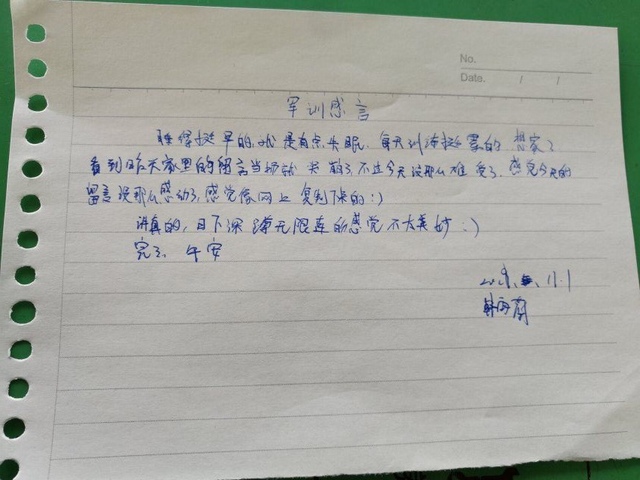 No.
Date. / /
军训感言
睡得挺早的,就是有点失眠.每天训练挺累的 想家了
看到昨天家里的留言当场就哭的了不过今天没那么难受了.感觉今天的
留言没那么感动了,感觉像网上复制下来的:)
讲真的,日下深蹲无限连的感觉不太美妙:)
完了、午安
11.1